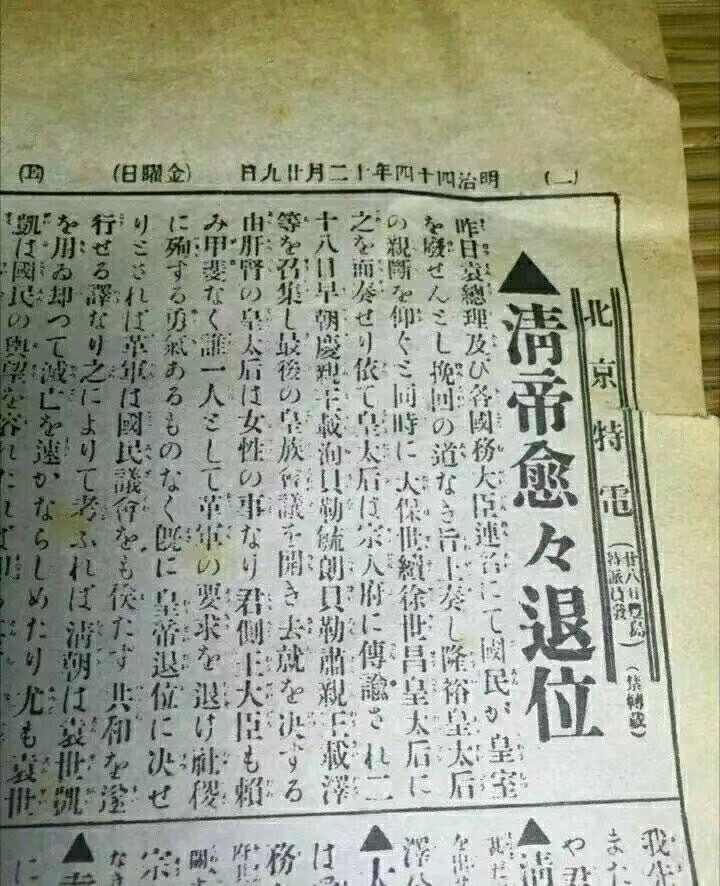 (二) 明治四十四年十二月廿九日 (金曜日)
北京特電
(廿八日豐島特派員發)
(禁轉載)
▲清帝愈々退位
昨日袁總理及び各國務大臣連名にて國民が皇室
を廢せんとし挽回の道なき旨上奏し隆裕皇太后
の親斷を仰ぐと同時に太保世續徐世昌皇太后に
之を面奏せり依て皇太后は宗人府に傳諭され二
十八日早朝慶親王載洵貝勒毓朗貝勒肅親王載澤
等を召集し最後の皇族會議を開き去就を決する
由肝腎の皇太后は女性の事なり君側王大臣も賴
み甲斐なく誰一人として革軍の要求を退け社稷
に殉する勇氣あるものなく既に皇帝退位に決せ
りとされば革軍は國民議會をも俟たず共和を遂
行せる譯なり之によりて考ふれば清朝は袁世凱
を用ゐ却つて滅亡を速かならしめたり尤も袁世
凱は國民の輿望を容れたれば
また
や君
▲清
を出
澤公
▲
は
務
宗
▲
に